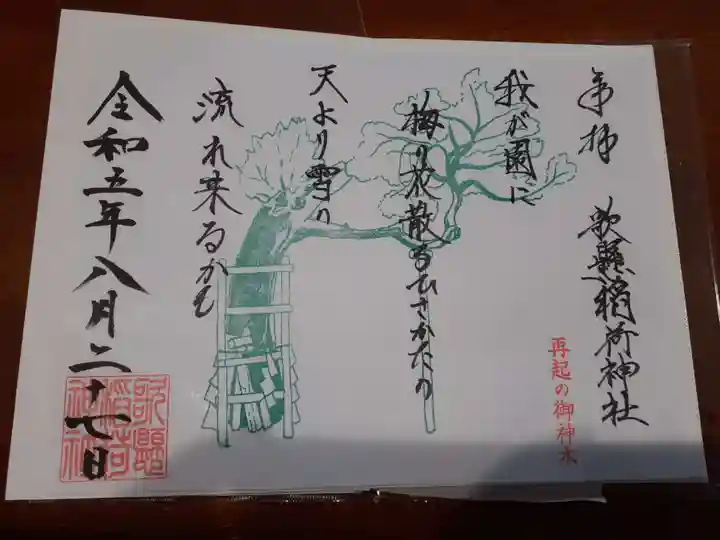 奉拝 歌懸稲荷神社
再起の御神木
我が園に
梅の花散るひさかたの
天より雪の
流れ来るかも
令和五年八月二十七日
歌懸稲荷神社